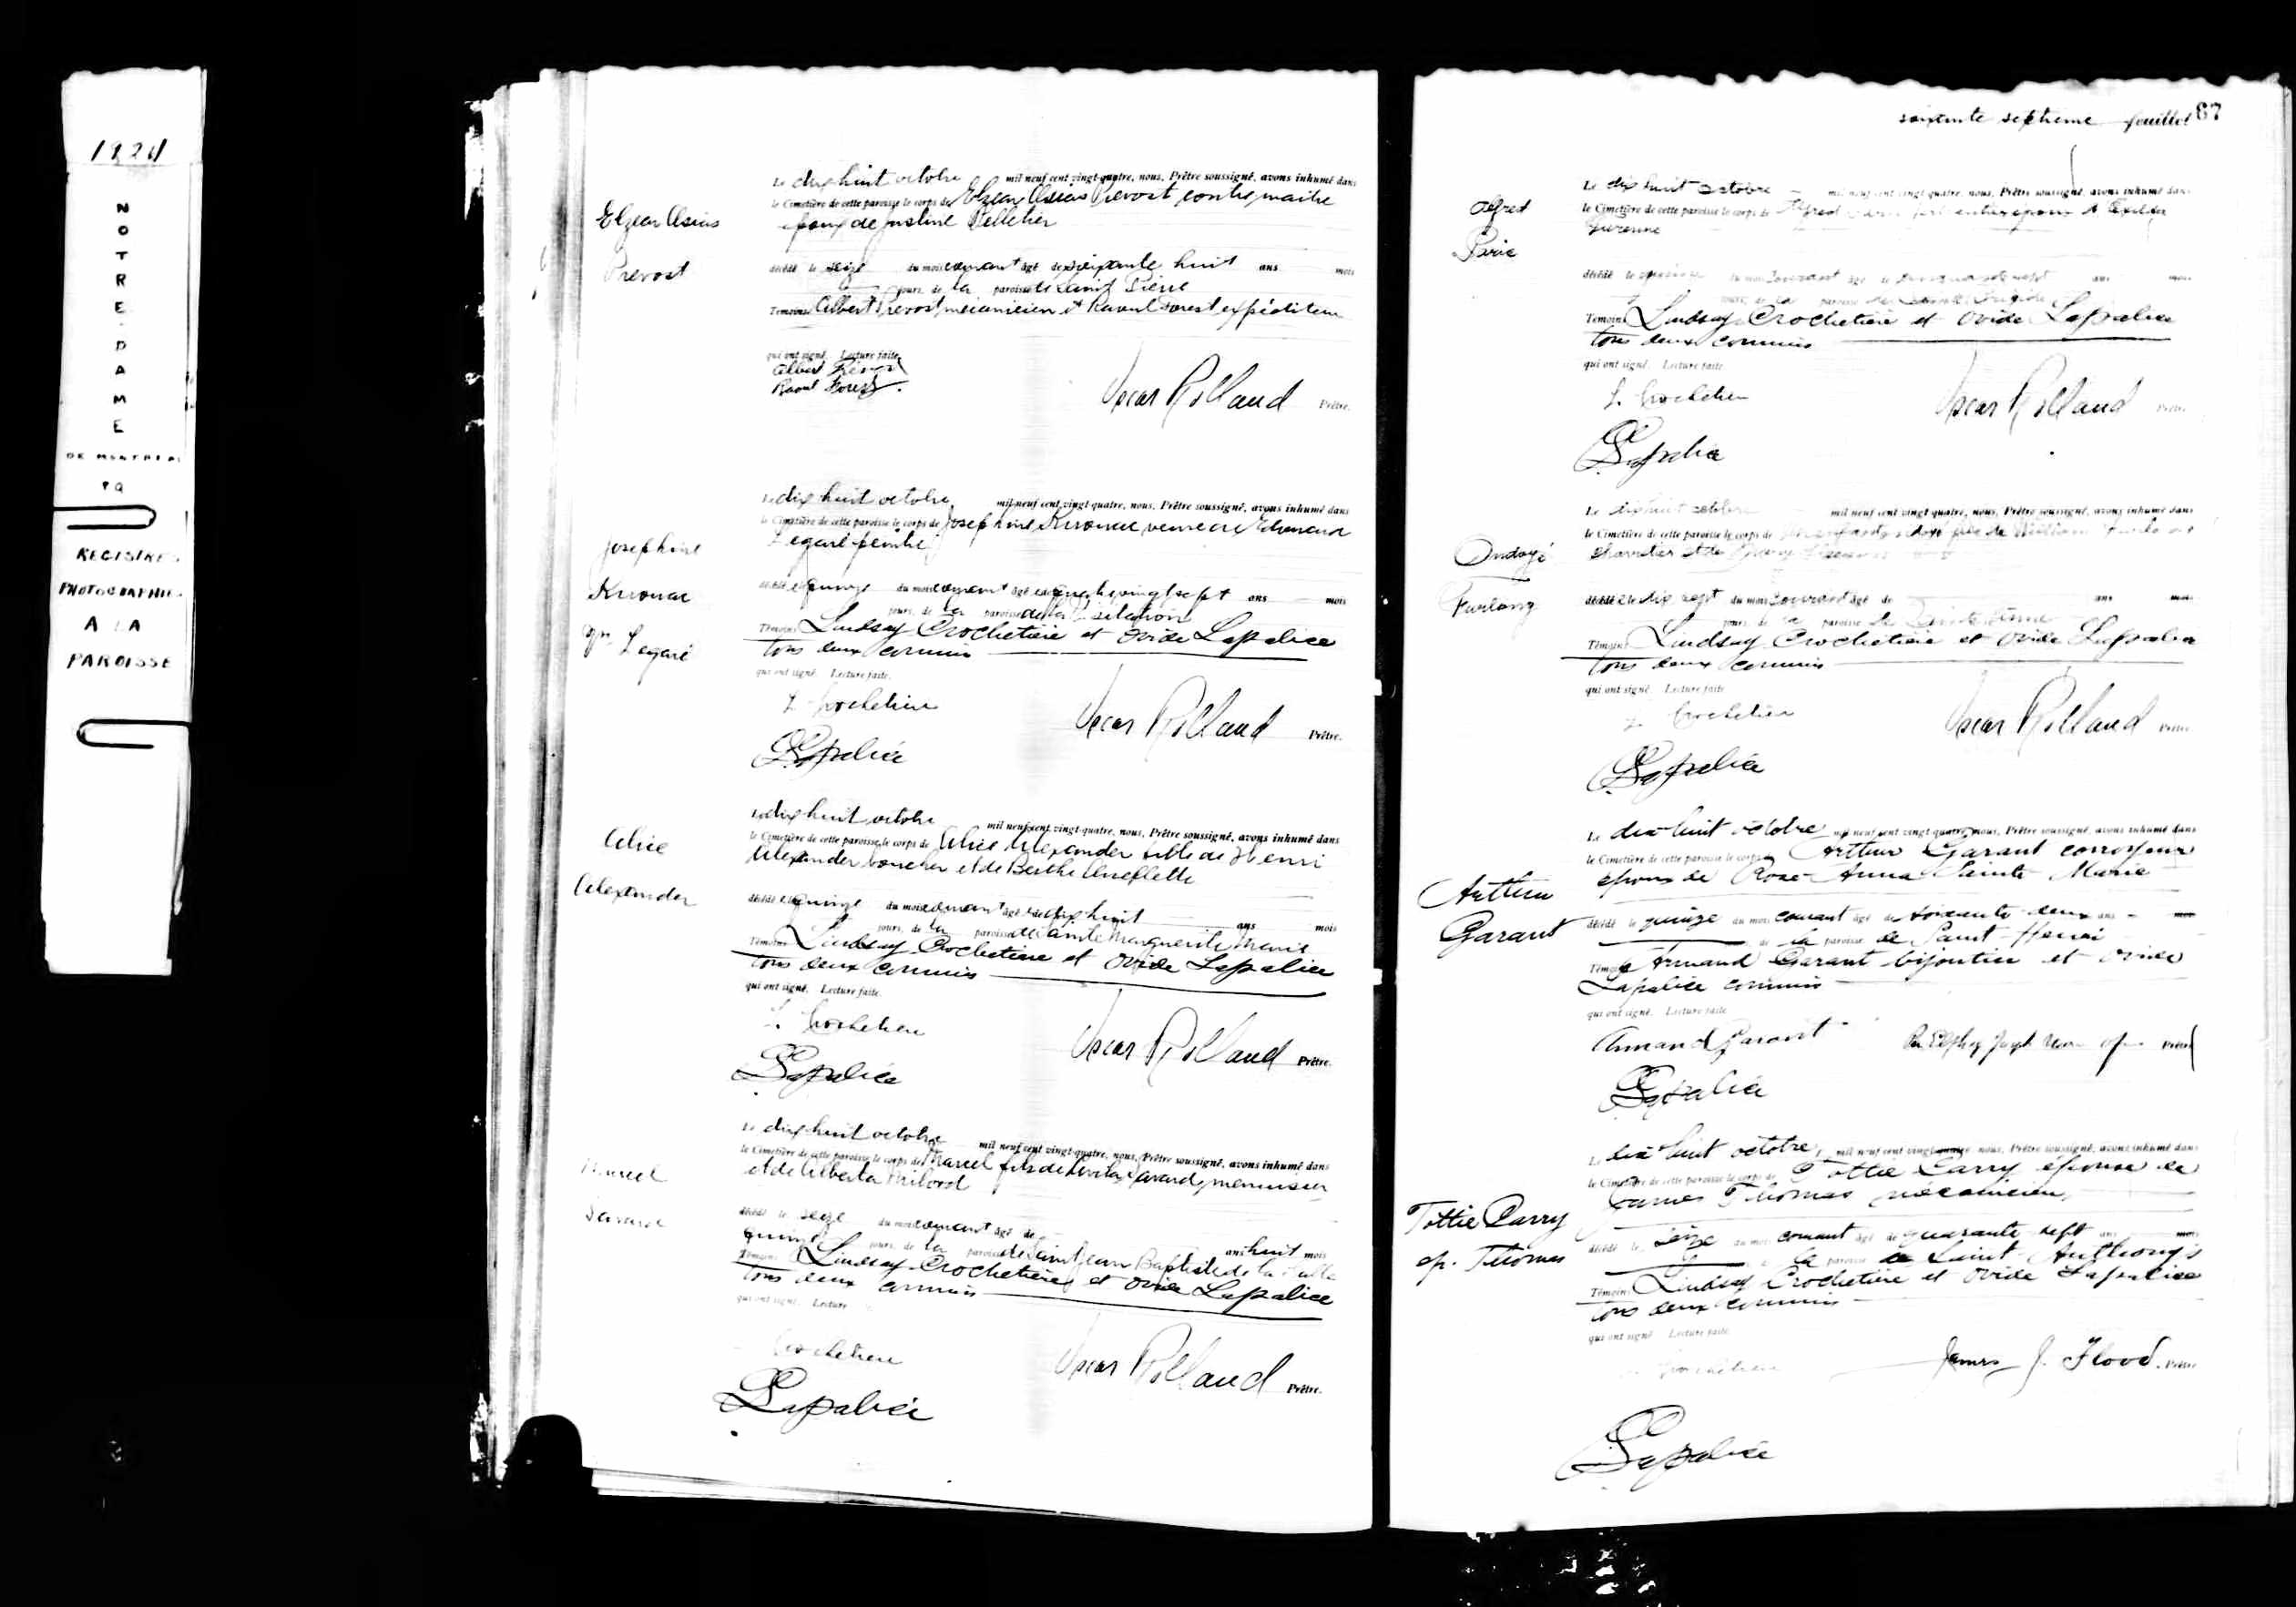 1924
NOTRE-DAME
DE MONTREAL
PQ
REGISTRE
PHOTOGRAPHIE
A LA
PAROISSE
Le dix huit octobre mil neuf cent vingt-quatre, nous, Prêtre soussigné, avons inhumé dans
le Cimetière de cette paroisse le corps de Elzear Prevost contre maitre
epoux de Justine Pelletier
Elzear
Prevost
décédé le seize du mois courant âgé de soixante huit ans mois
jours, de la paroisse de Saint Pierre
Témoins Albert Prevost mécanicien et Raoul Forest expéditeur
qui ont signé. Lecture faite.
Albert Prevost
Raoul Forest
Oscar Rolland Prêtre.
Le dix huit octobre mil neuf cent vingt-quatre, nous, Prêtre soussigné, avons inhumé dans
le Cimetière de cette paroisse le corps de Josephine Kirouac veuve de
Legaré peintre
Josephine
Kirouac
Vve Legaré
décédée le quinze du mois courant âgée de quatre vingt sept ans mois
jours, de la paroisse de la Visitation
Témoins Lindsay Crochetiere et Ovide Lapalice
tous deux commis
qui ont signé. Lecture faite.
L. Crochetiere
Lapalice
Oscar Rolland Prêtre.
Le dix huit octobre mil neuf cent vingt-quatre, nous, Prêtre soussigné, avons inhumé dans
le Cimetière de cette paroisse le corps de Alice Alexander fille de Henri
Alexander boucher et de Berthe
Alice
Alexander
décédée le quinze du mois courant âgée de dix huit ans mois
jours, de la paroisse de Sainte Marguerite Marie
Témoins Lindsay Crochetiere et Ovide Lapalice
tous deux commis
qui ont signé. Lecture faite.
L. Crochetiere
Lapalice
Oscar Rolland Prêtre.
Le dix huit octobre mil neuf cent vingt-quatre, nous, Prêtre soussigné, avons inhumé dans
le Cimetière de cette paroisse le corps de Marcel fils de Savard menuisier
et de Alberta Milord
Marcel
Savard
décédé le seize du mois courant âgé de ans huit mois
quinze jours, de la paroisse de Saint Jean Baptiste de la Salle
Témoins Lindsay Crochetiere et Ovide Lapalice
tous deux commis
qui ont signé. Lecture
Crochetiere
Lapalice
Oscar Rolland Prêtre.
soixante septieme feuillet 67
Le dix huit octobre mil neuf cent vingt-quatre, nous, Prêtre soussigné, avons inhumé dans
le Cimetière de cette paroisse le corps de Alfred
Alfred
décédé le du mois courant âgé de ans mois
jours, de la paroisse de Sainte Brigide
Témoins Lindsay Crochetiere et Ovide Lapalice
tous deux commis
qui ont signé. Lecture faite.
L. Crochetiere
Lapalice
Oscar Rolland Prêtre
Le dix huit octobre mil neuf cent vingt-quatre, nous, Prêtre soussigné, avons inhumé dans
le Cimetière de cette paroisse le corps de William
charretier et de
Ondoyé
Furlong
décédé le dix sept du mois courant âgé de ans mois
jours, de la paroisse de Sainte
Témoins Lindsay Crochetiere et Ovide Lapalice
tous deux commis
qui ont signé. Lecture faite
L. Crochetiere
Lapalice
Oscar Rolland Prêtre
Le dix-huit octobre mil neuf cent vingt-quatre, nous, Prêtre soussigné, avons inhumé dans
le Cimetière de cette paroisse le corps de Arthur Garant corroyeur
epoux de Rose-Anna Sainte Marie
Arthur
Garant
décédé le quinze du mois courant âgé de soixante deux ans
de la paroisse de Saint-Henri
Témoins Armand Garant bijoutier et Ovide
Lapalice commis
qui ont signé. Lecture faite
Armand Garant
Lapalice
Prêtre
Le dix-huit octobre, mil neuf cent vingt-quatre nous, Prêtre soussigné, avons inhumé dans
le Cimetière de cette paroisse le corps de Tottie Carry épouse de
James Thomas mécanicien
Tottie Carry
ep. Thomas
décédé le seize du mois courant âgé de quarante sept ans mois
de la paroisse de Saint-Anthony's
Témoins Lindsay Crochetiere et Ovide Lapalice
tous deux commis
qui ont signé Lecture faite
Crochetiere
James J. Flood. Prêtre
Lapalice